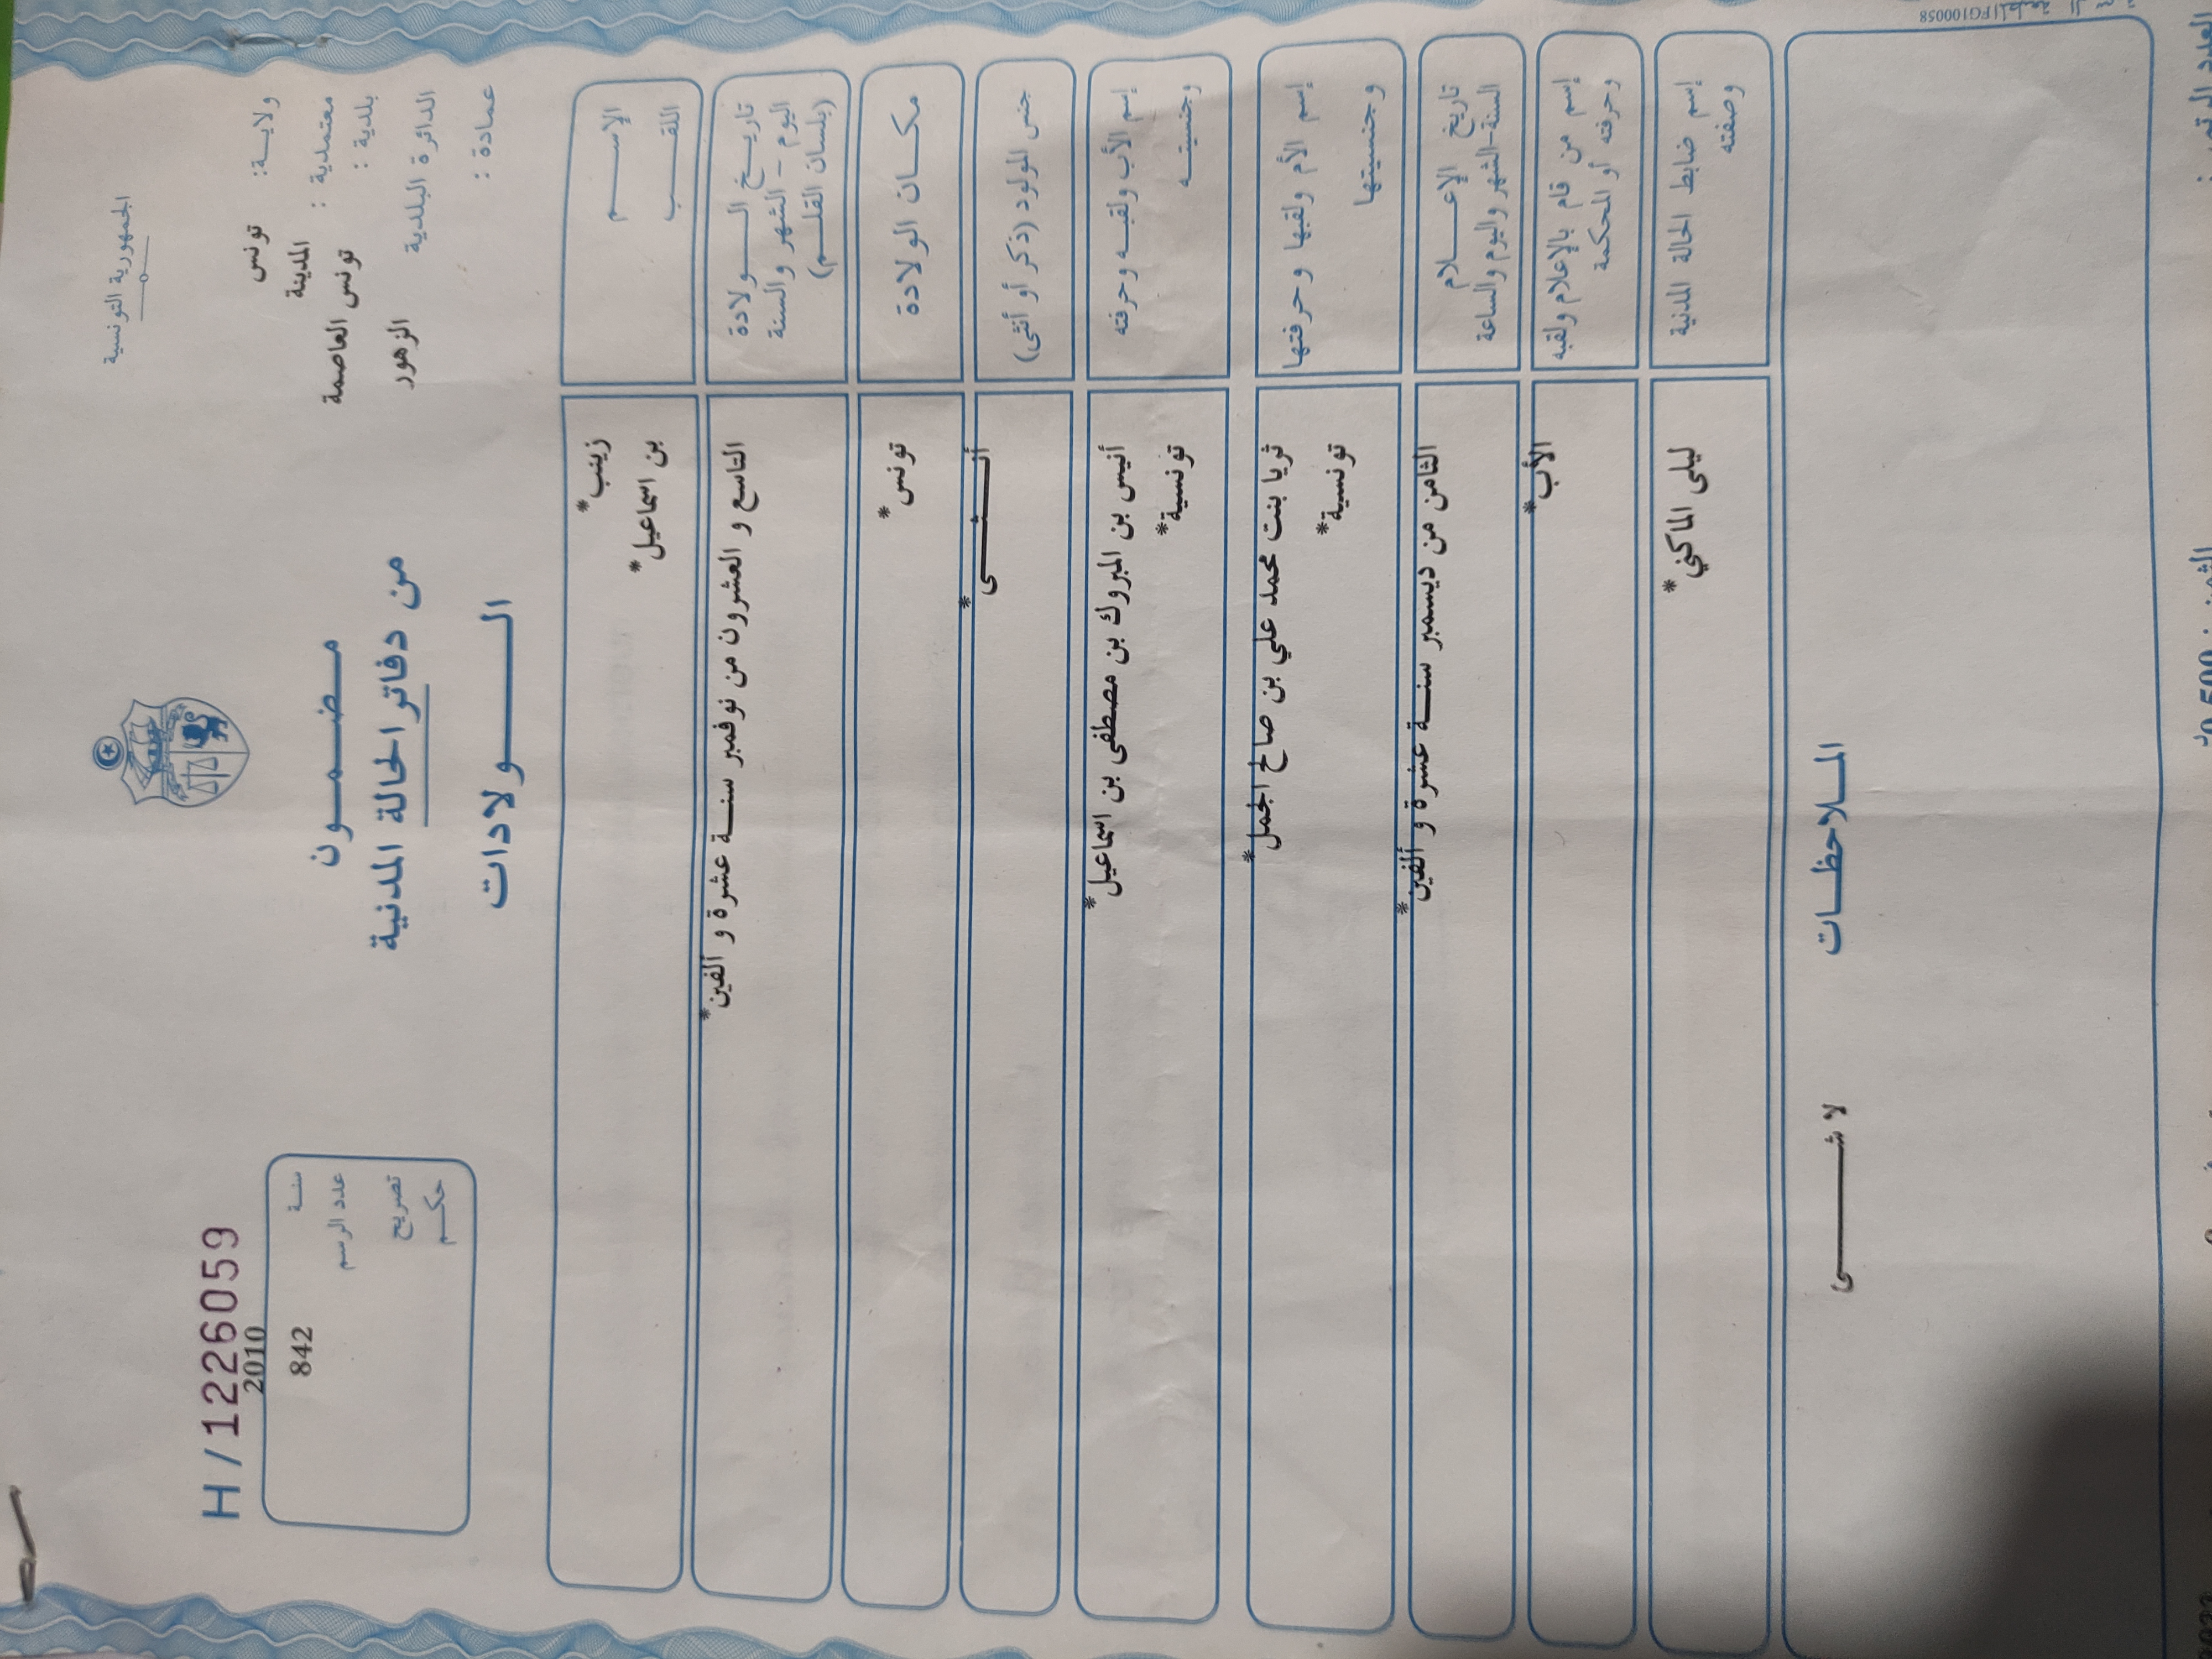 الجمهورية التونسية
ولايـة: تونس
معتمدية : المدينة
بلدية : تونس العاصمة
الدائرة البلدية الزهور
عمادة :
مـضـمـون
من دفاتر الحالة المدنية
الـولادات
H / 1226059
سنـة 2010
عدد الرسم 842
تصريح
حكـم
الإسـم زينب*
اللقـب بن اسماعيل*
تاريـخ الـولادة
اليوم – الشهر والسنة
(بلسان القلـم)
التاسع و العشرون من نوفمبر سنـة عشرة و ألفين*
مكـان الولادة تونس*
جنس المولود (ذكر أو أنثى) أنـثـى*
إسم الأب ولقبـه وحرفته أنيس بن المبروك بن مصطفى بن اسماعيل*
وجنسيتـه تونسية*
إسم الأم ولقبها وحرفتها ثريا بنت محمد علي بن صالح الجمل*
وجنسيتها تونسية*
تاريخ الإعـلام
السنة-الشهر واليوم والساعة
الثامن من ديسمبر سنـة عشرة و ألفين*
إسم من قام بالإعلام ولقبه
وحرفته أو المحكمة
الأب*
إسم ضابط الحالة المدنية
وصفته
ليلى الماكني*
المـلاحظـات
لا شـى
FG100058